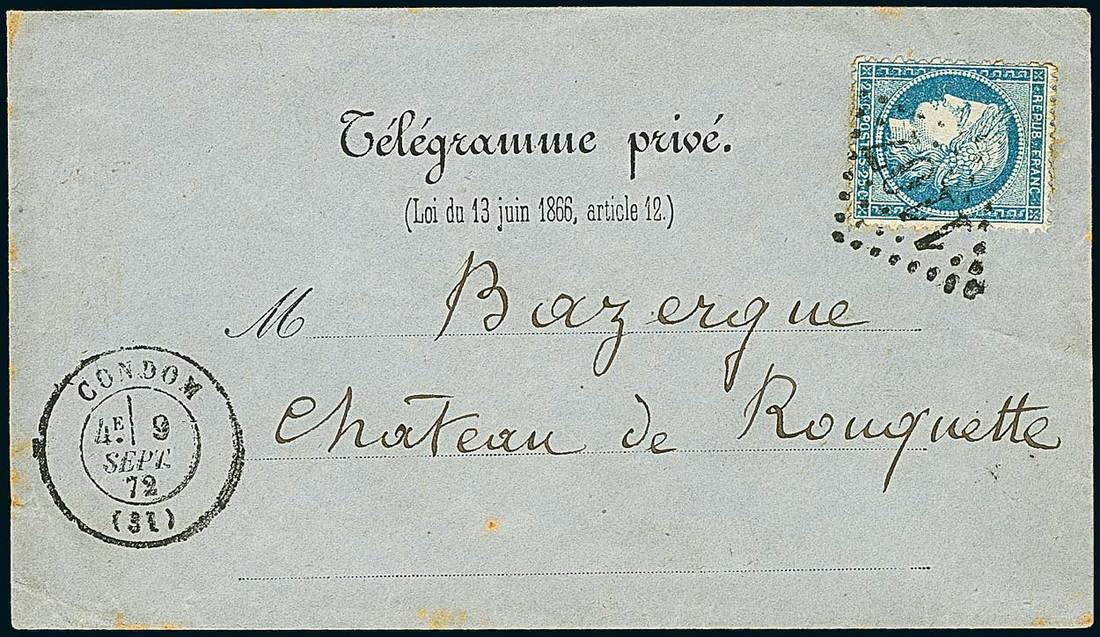 Télégramme privé.
(Loi du 13 juin 1866, article 12.)
REPUB. FRANC.
25.c POSTES 25.c
M Bazergue
Château de Rouquette
CONDOM
4E. 9
SEPT.
72
(31)